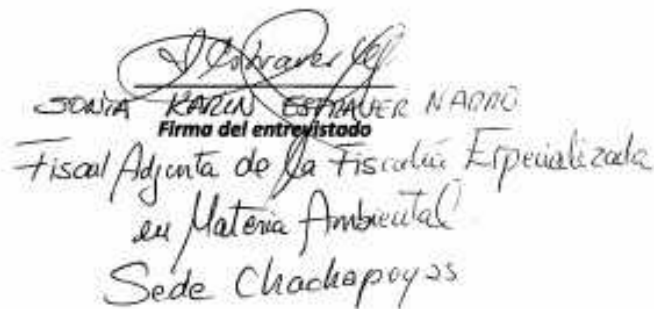 SONIA KARIN ESTRAVER NARRO
Firma del entrevistado
Fiscal Adjunta de la Fiscalía Especializada
en Materia Ambiental
Sede Chachapoyas